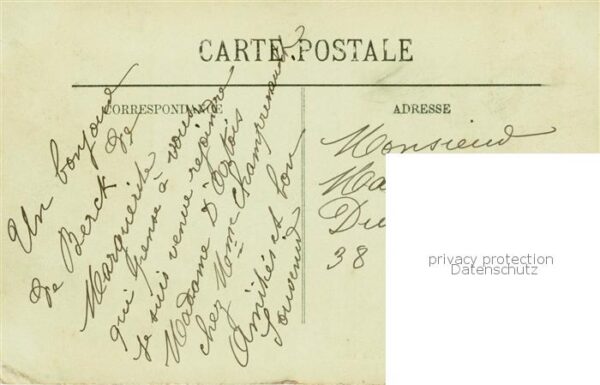 CARTE POSTALE
CORRESPONDANCE
ADRESSE
Un bonjour
de Berck de
Marguerite
qui pense à vous
Je suis venue rejoindre
Madame D'Artois
chez Mme Champrenault
Amitiés et bon
Souvenir
Monsieur
Ma
Du
38
privacy protection
Datenschutz